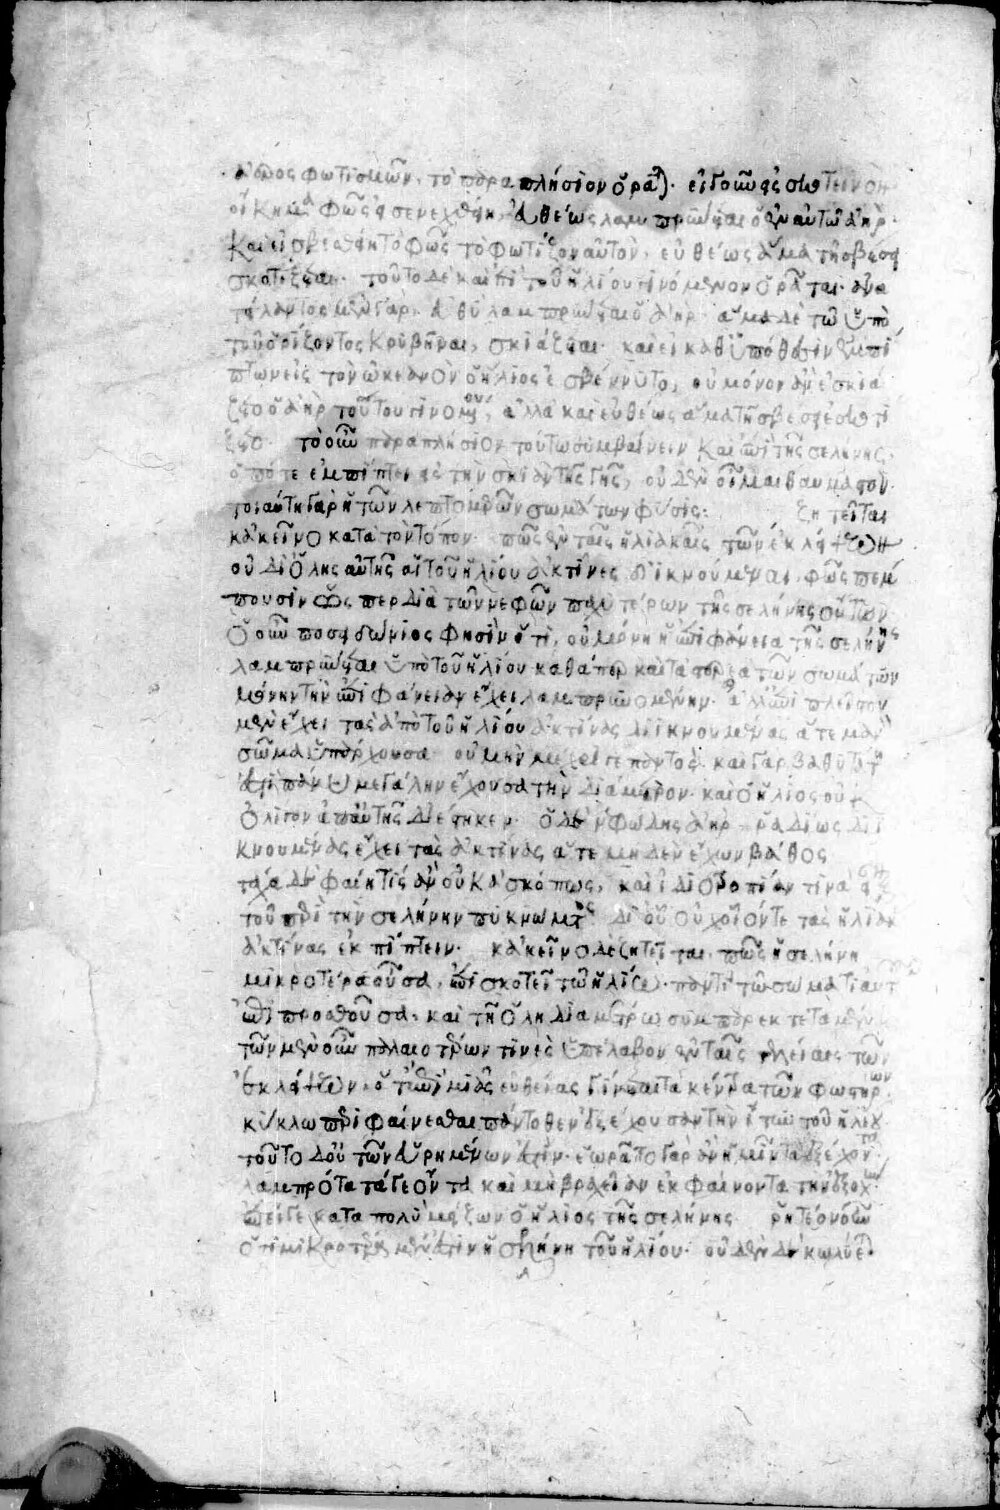 εἶδος φωτισμῶν, τὸ παραπλήσιον ὁρᾶται. εἰ γοῦν εἰς σκοτεινὸν
οἴκημα φῶς εἰσενεχθείη, εὐθέως λαμπρύνεται ὁ ἐν αὐτῶ ἀήρ.
καὶ εἰ σβεσθείη τὸ φῶς τὸ φωτίζον αὐτὸν, εὐθέως ἅμα τῆ σβέσει
σκοτίζεται. τοῦτο δὲ καὶ ἐπὶ τοῦ ἡλίου γινόμενον ὁρᾶται. ἀνα
τείλαντος μὲν γὰρ, εὐθὺ λαμπρύνεται ὁ ἀήρ. ἅμα δὲ τῶ ὑπὸ
τοῦ ὁρίζοντος κρυβῆναι, σκιάζεται. καὶ εἰ καθ' ὑπόθεσιν ἐμπί
πτων εἰς τὸν ὠκεανὸν ὁ ἥλιος ἐσβέννυτο, οὐ μόνον ἂν ἐσκιά
ζετο ὁ ἀὴρ τούτου γινομένου, ἀλλὰ καὶ εὐθέως ἅμα τῆ σβέσει ἐσκοτί
ζετο. τὸ οὖν παραπλήσιον τούτω συμβαίνειν καὶ ἐπὶ τῆς σελήνης,
ὁπότε ἐμπίπτει εἰς τὴν σκιὰν τῆς γῆς, οὐδὲν οἶμαι θαυμαστόν.
τοιαύτη γὰρ ἡ τῶν λεπτομερῶν σωμάτων φύσις: ζητεῖται
κἀκεῖνο κατὰ τὸν τόπον. πῶς ἐν ταῖς ἡλιακαῖς τῶν ἐκλείψεων
οὐ δι' ὅλης αὐτῆς αἱ τοῦ ἡλίου ἀκτῖνες διϊκνούμεναι, φῶς πέμ
πουσιν ὥσπερ διὰ τῶν νεφῶν παχυτέρων τῆς σελήνης οὐσῶν.
ὁ οὖν ποσειδώνιος φησὶν ὅτι, οὐ μόνη ἡ ἐπιφάνεια τῆς σελήνης
λαμπρύνεται ὑπὸ τοῦ ἡλίου καθάπερ καὶ τὰ στερεὰ τῶν σωμάτων
μόνην τὴν ἐπιφάνειαν ἔχει λαμπρυνομένην. ἀλλ' ἐπὶ πλεῖστον
μὲν ἔχει τὰς ἀπὸ τοῦ ἡλίου ἀκτῖνας διϊκνουμένας ἅτε μανὸν
σῶμα ὑπάρχουσα οὐ μὴν μέχρι γε παντός. καὶ γὰρ βαθυτάτη
ἐστὶ πάνυ μεγάλην ἔχουσα τὴν διάμετρον. καὶ ὁ ἥλιος οὐκ
ὀλίγον ἀπ' αὐτῆς διέστηκεν. ὁ δὲ νεφώδης ἀὴρ ῥαδίως διϊ
κνουμένας ἔχει τὰς ἀκτῖνας ἅτε μηδὲν ἔχων βάθος
τάχα δὲ φαίη τις ἂν οὐκ ἀσκόπως, καὶ ἰδιότροπιάν τινα εἶναι
τοῦ περὶ τὴν σελήνην πυκνώματος δι' οὗ οὐχ οἷόν τε τὰς ἡλιακὰς
ἀκτῖνας ἐκπίπτειν. κἀκεῖνο δὲ ζητεῖται, πῶς ἡ σελήνη
μικροτέρα οὖσα, ἐπισκοτεῖ τῶ ἡλίω, παντὶ τῶ σώματι αὐτ
ἐπιπροσθοῦσα, καὶ τῆ ὅλη διαμέτρω συμπαρεκτεταμένη
τῶν μὲν οὖν παλαιοτέρων τινες ὑπέλαβον ἐν ταῖς τελείαις τῶν
ἐκλείψεων, ὅτ' ἂν ἐπὶ μιᾶς εὐθείας γίνηται τὰ κέντρα τῶν φωστήρων
κύκλω περιφαίνεσθαι πάντοθεν ἐξέχουσαν τὴν ἴτυν τοῦ ἡλίου
τοῦτο δ' οὐ τῶν εὑρημένων ἐστίν. ἑωρᾶτο γὰρ ἂν ἡμῖν τὰ ἐξέχοντα
λαμπρότατά γε ὄντα καὶ μὴ βραχεῖαν ἐκφαίνοντα τὴν ἐξοχὴν
ἐπείγε κατὰ πολὺ μείζων ὁ ἥλιος τῆς σελήνης ῥητέον οὖν
ὅτι μικροτέρα μέν ἐστιν ἡ σελήνη τοῦ ἡλίου. οὐδὲν δὲ κωλύει